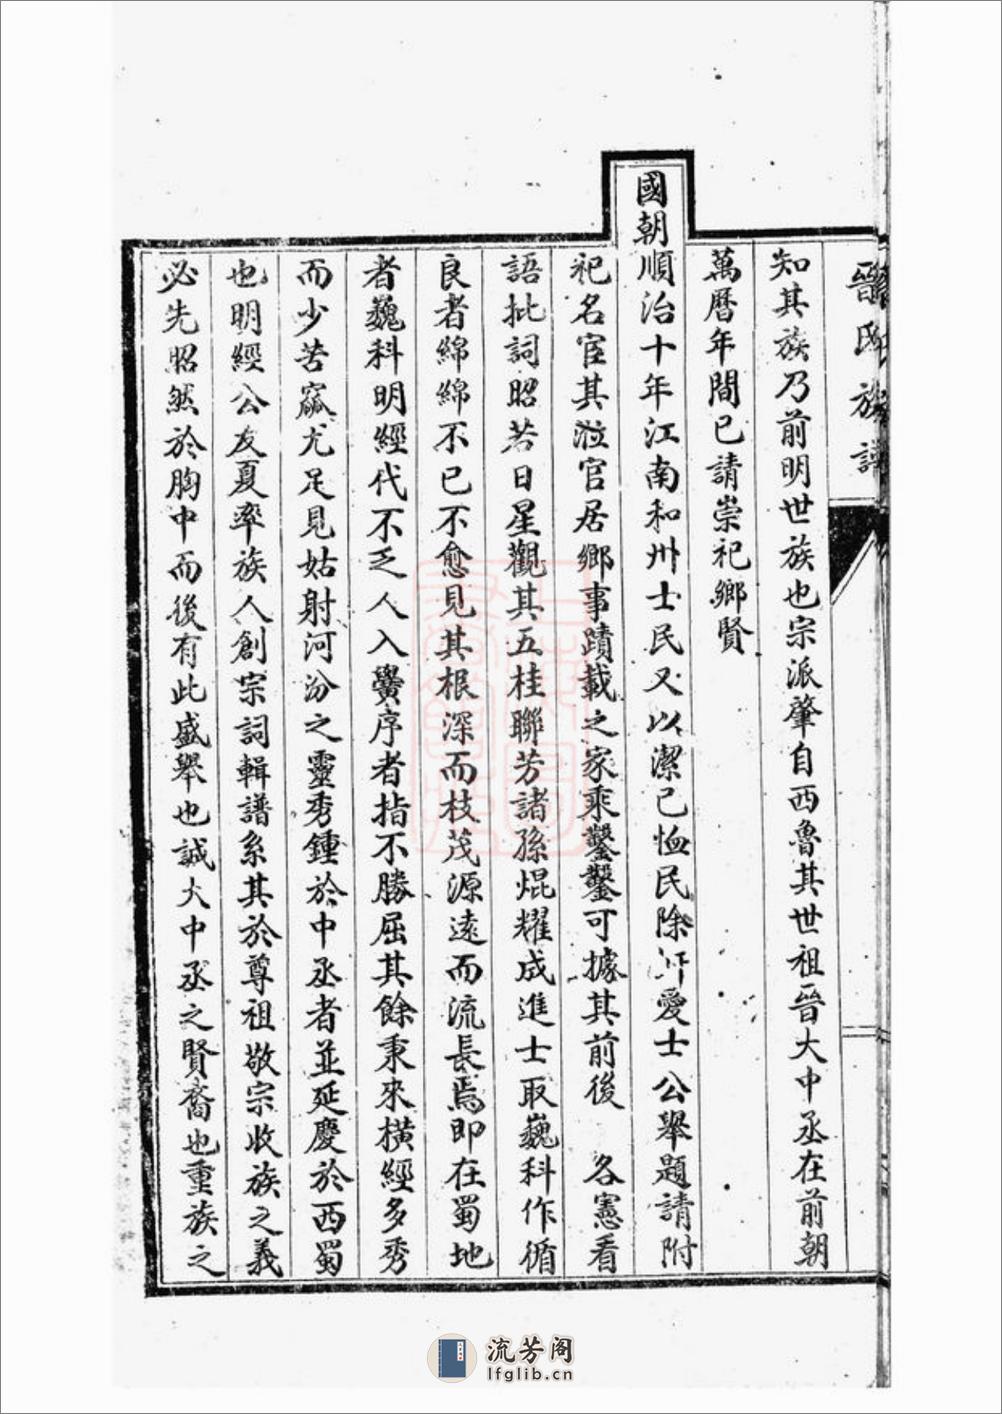 晉氏族譜
知其族乃前明世族也宗派肇自西魯其世祖晉大中丞在前朝
萬曆年間已請崇祀鄉賢
國朝順治十年江南和州士民又以潔己恤民除奸愛士公舉題請附
祀名宦其涖官居鄉事蹟載之家乘鑿鑿可據其前後 各憲看
語批詞昭若日星觀其五桂聯芳諸孫焜耀成進士取巍科作循
良者綿綿不已不愈見其根深而枝茂源遠而流長焉即在蜀地
者巍科明經代不乏人入黌序者指不勝屈其餘秉耒橫經多秀
而少苦窳尤足見姑射河汾之靈秀鍾於中丞者並延慶於西蜀
也明經公友夏率族人創宗詞輯譜系其於尊祖敬宗收族之義
必先昭然於胸中而後有此盛舉也誠大中丞之賢裔也重族之
流芳阁
lfglib.cn